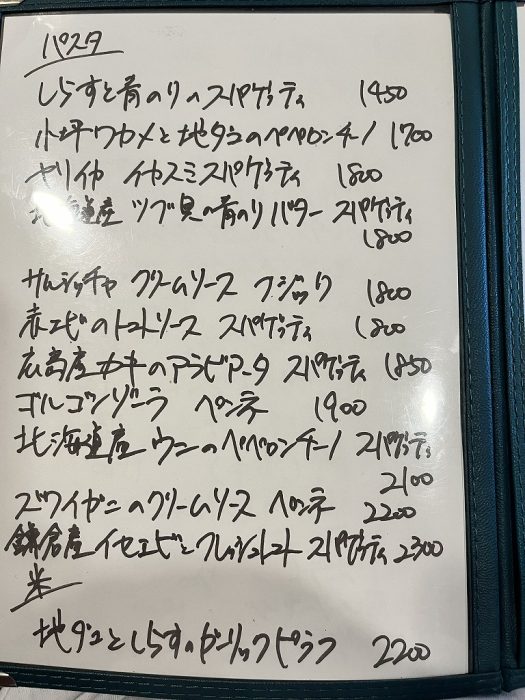 パスタ
しらすと青のりのスパゲッティ 1450
小坪ワカメと地ダコのペペロンチーノ 1700
ヤリイカ イカスミスパゲッティ 1800
北海道産 ツブ貝の青のりバター スパゲッティ
1800
サルシッチャ クリームソース フジッリ 1800
赤エビのトマトソース スパゲッティ 1800
広島産カキのアラビアータ スパゲッティ 1850
ゴルゴンゾーラ ペンネ 1900
北海道産 ウニのペペロンチーノ スパゲッティ
2100
ズワイガニのクリームソース ペンネ 2200
鎌倉産イセエビとフレッシュトマト スパゲッティ 2300
米
地ダコとしらすのガーリックピラフ 2200